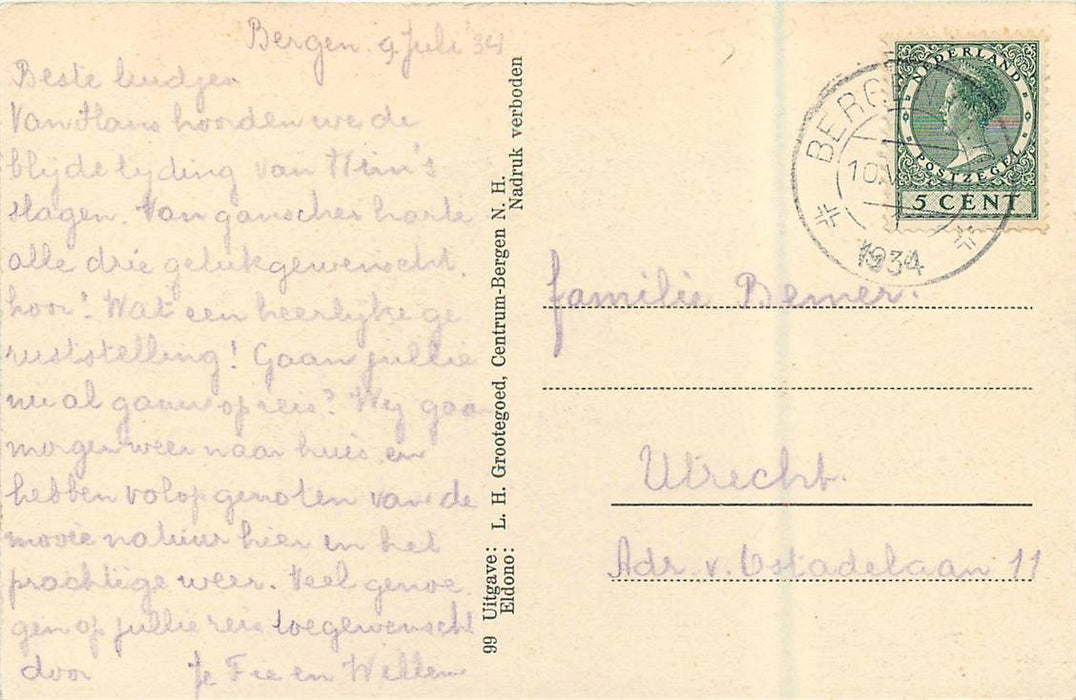 Bergen. 9 Juli '34
Beste luidjen
Van Hans hoorden we de
blijde tijding van Wim's
slagen. Van ganscher harte
alle drie gelukgewenscht,
hoor! Wat een heerlijke ge
ruststelling! Gaan jullie
nu al gauw op reis? Wij gaan
morgen weer naar huis en
hebben volop genoten van de
mooie natuur hier en het
prachtige weer. Veel genoe
gen op jullie reis toegewenscht
door Fie en Willem
99 Uitgave: L. H. Grootegoed, Centrum-Bergen N. H.
Eldono: Nadruk verboden
NEDERLAND
POSTZEGEL
5 CENT
BERGEN
10.V
1934
familie Bemer.
Utrecht.
Adr. v. Ostadelaan 11